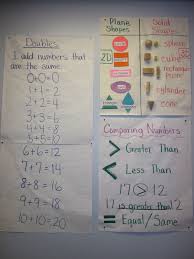 Doubles
I add numbers that
are the same.
0+0=0
1+1=2
2+2=4
3+3=6
4+4=8
5+5=10
6+6=12
7+7=14
8+8=16
9+9=18
10+10=20
Plane
Shapes
Solid
Shapes
2D
sphere
cube
rectangular
prism
cylinder
cone
Comparing Numbers
> Greater Than
< Less Than
17 > 12
17 is greater than 12
= Equal/Same